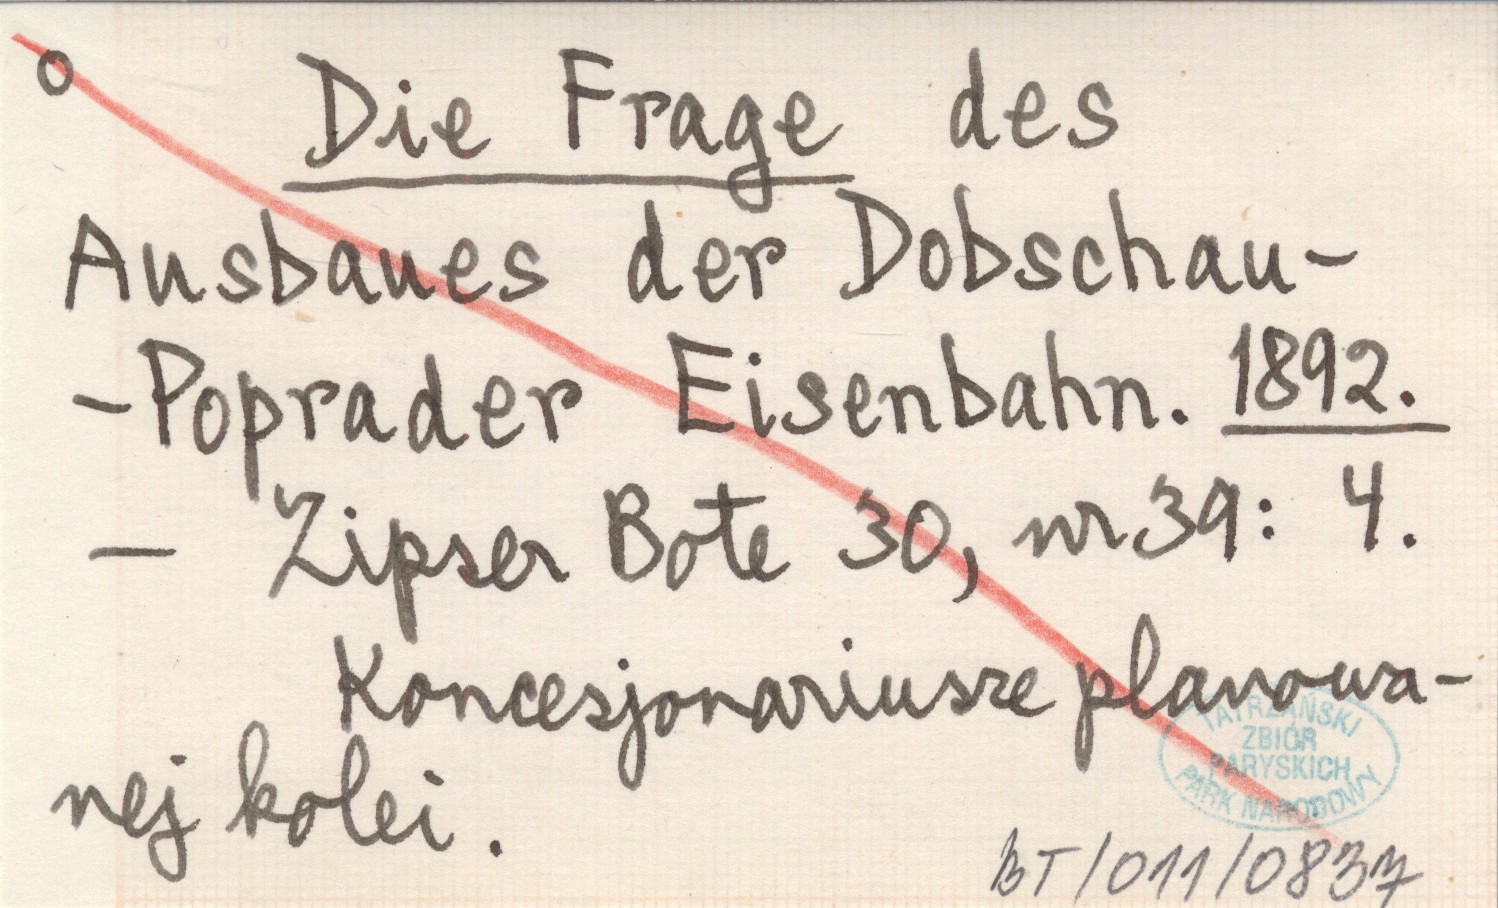 o Die Frage des
Ausbaues der Dobschau-
-Poprader Eisenbahn. 1892.
— Zipser Bote 30, nr 39: 4.
Koncesjonariusze planowa-
nej kolei.
TATRZAŃSKI
ZBIÓR
PARYSKICH
PARK NARODOWY
BT/011/0837